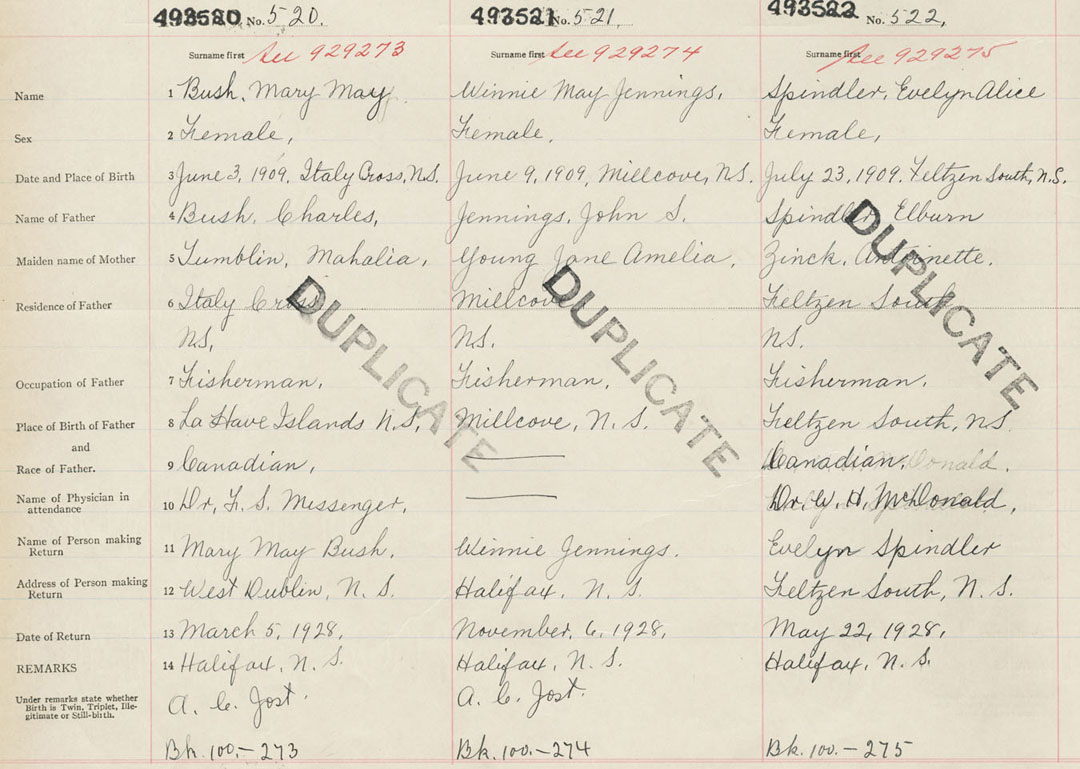 493520 No. 520. 493521 No. 521. 493522 No. 522,
Surname first See 929273 Surname first See 929274 Surname first See 929275
Name 1 Bush, Mary May Winnie May Jennings, Spindler, Evelyn Alice
Sex 2 Female, Female, Female,
Date and Place of Birth 3 June 3, 1909, Italy Cross, N.S. June 9, 1909, Millcove, N.S. July 23, 1909. Feltzen South, N.S.
Name of Father 4 Bush, Charles, Jennings, John S. Spindler Elburn
Maiden name of Mother 5 Tumblin, Mahalia, Young Jane Amelia, Zinck, Antoinette.
Residence of Father 6 Italy Cross Millcove Feltzen South
N.S, N.S. N.S.
DUPLICATE DUPLICATE DUPLICATE
Occupation of Father 7 Fisherman, Fisherman, Fisherman.
Place of Birth of Father 8 La Have Islands N.S, Millcove, N. S. Feltzen South, N.S.
and
Race of Father. 9 Canadian, Canadian.
Name of Physician in
attendance 10 Dr, F. S. Messenger, Dr. W. H. McDonald,
Name of Person making
Return 11 Mary May Bush. Winnie Jennings. Evelyn Spindler
Address of Person making
Return 12 West Dublin, N. S. Halifax, N. S. Feltzen South, N. S.
Date of Return 13 March 5, 1928, November, 6, 1928, May 22, 1928,
REMARKS 14 Halifax, N. S. Halifax, N. S. Halifax, N. S.
Under remarks state whether
Birth is Twin, Triplet, Ille-
gitimate or Still-birth. A. C. Jost. A. C. Jost.
Bk. 100,-273 Bk. 100.-274 Bk. 100.-275